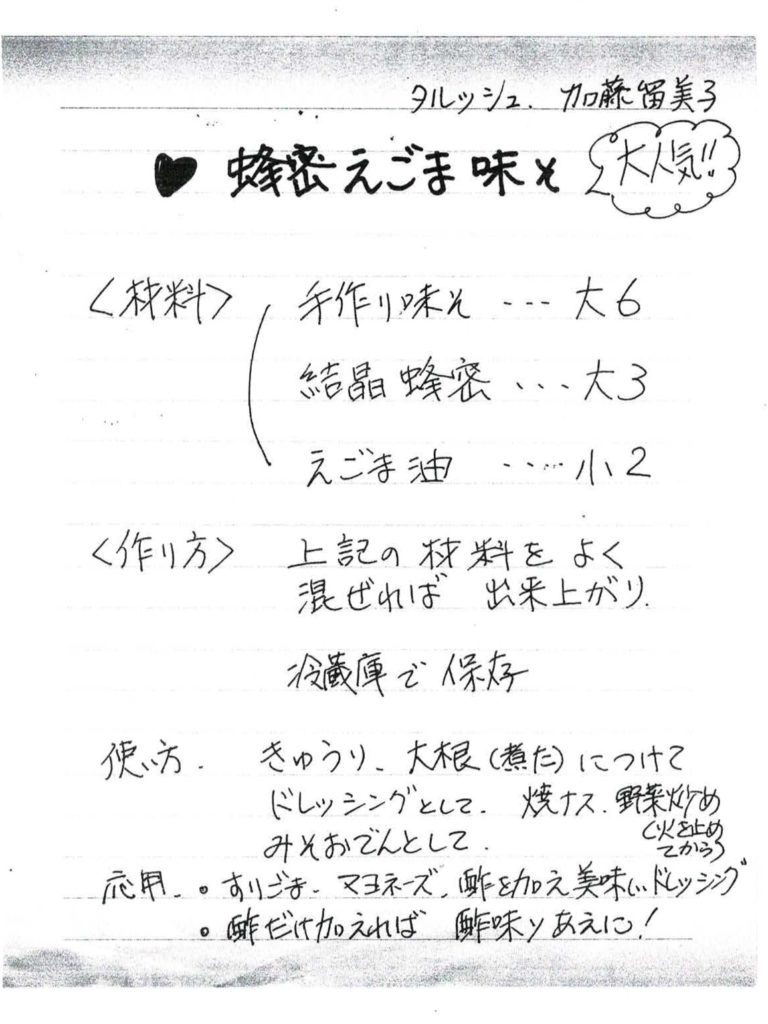 タルッシュ. 加藤留美子
♥ 蜂密えごま味そ 大人気!!
〈材料〉 手作り味そ ・・・ 大6
結晶蜂密 ・・・ 大3
えごま油 ・・・・ 小2
〈作り方〉 上記の材料をよく
混ぜれば 出来上がり.
冷蔵庫で保存
使い方. きゅうり、大根(煮た)につけて
ドレッシングとして. 焼ナス. 野菜炒め
(火を止めてから)
みそおでんとして.
応用. ○ すりごま. マヨネーズ. 酢を加え美味しいドレッシング
○ 酢だけ加えれば 酢味ソあえに!